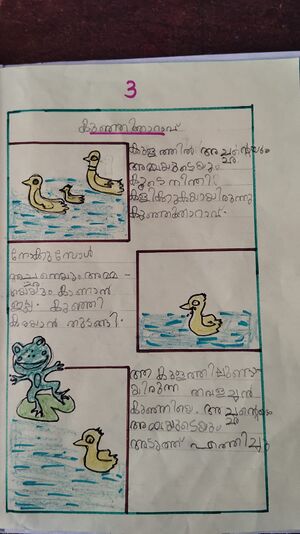 3
കുഞ്ഞിത്താറാവ്
കുളത്തിൽ അച്ഛന്റെയും
അമ്മയുടെയും
കൂടെ നീന്തി
കളിക്കുകയായിരുന്നു
കുഞ്ഞിത്താറാവ്.
നോക്കുമ്പോൾ
അച്ഛനെയും അമ്മ-
യെയും കാണാൻ
ഇല്ല. കുഞ്ഞി
കരയാൻ തുടങ്ങി.
ആ കുളത്തിലുണ്ടാ
യിരുന്ന തവളച്ചൻ
കുഞ്ഞിയെ അച്ഛന്റെയും
അമ്മയുടെയും
അടുത്ത് എത്തിച്ചു